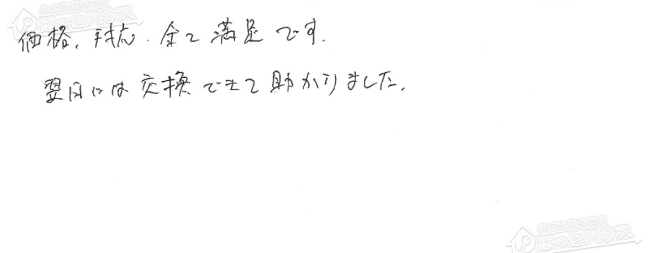 価格、対応、全て満足です。
翌日には交換できて助かりました。